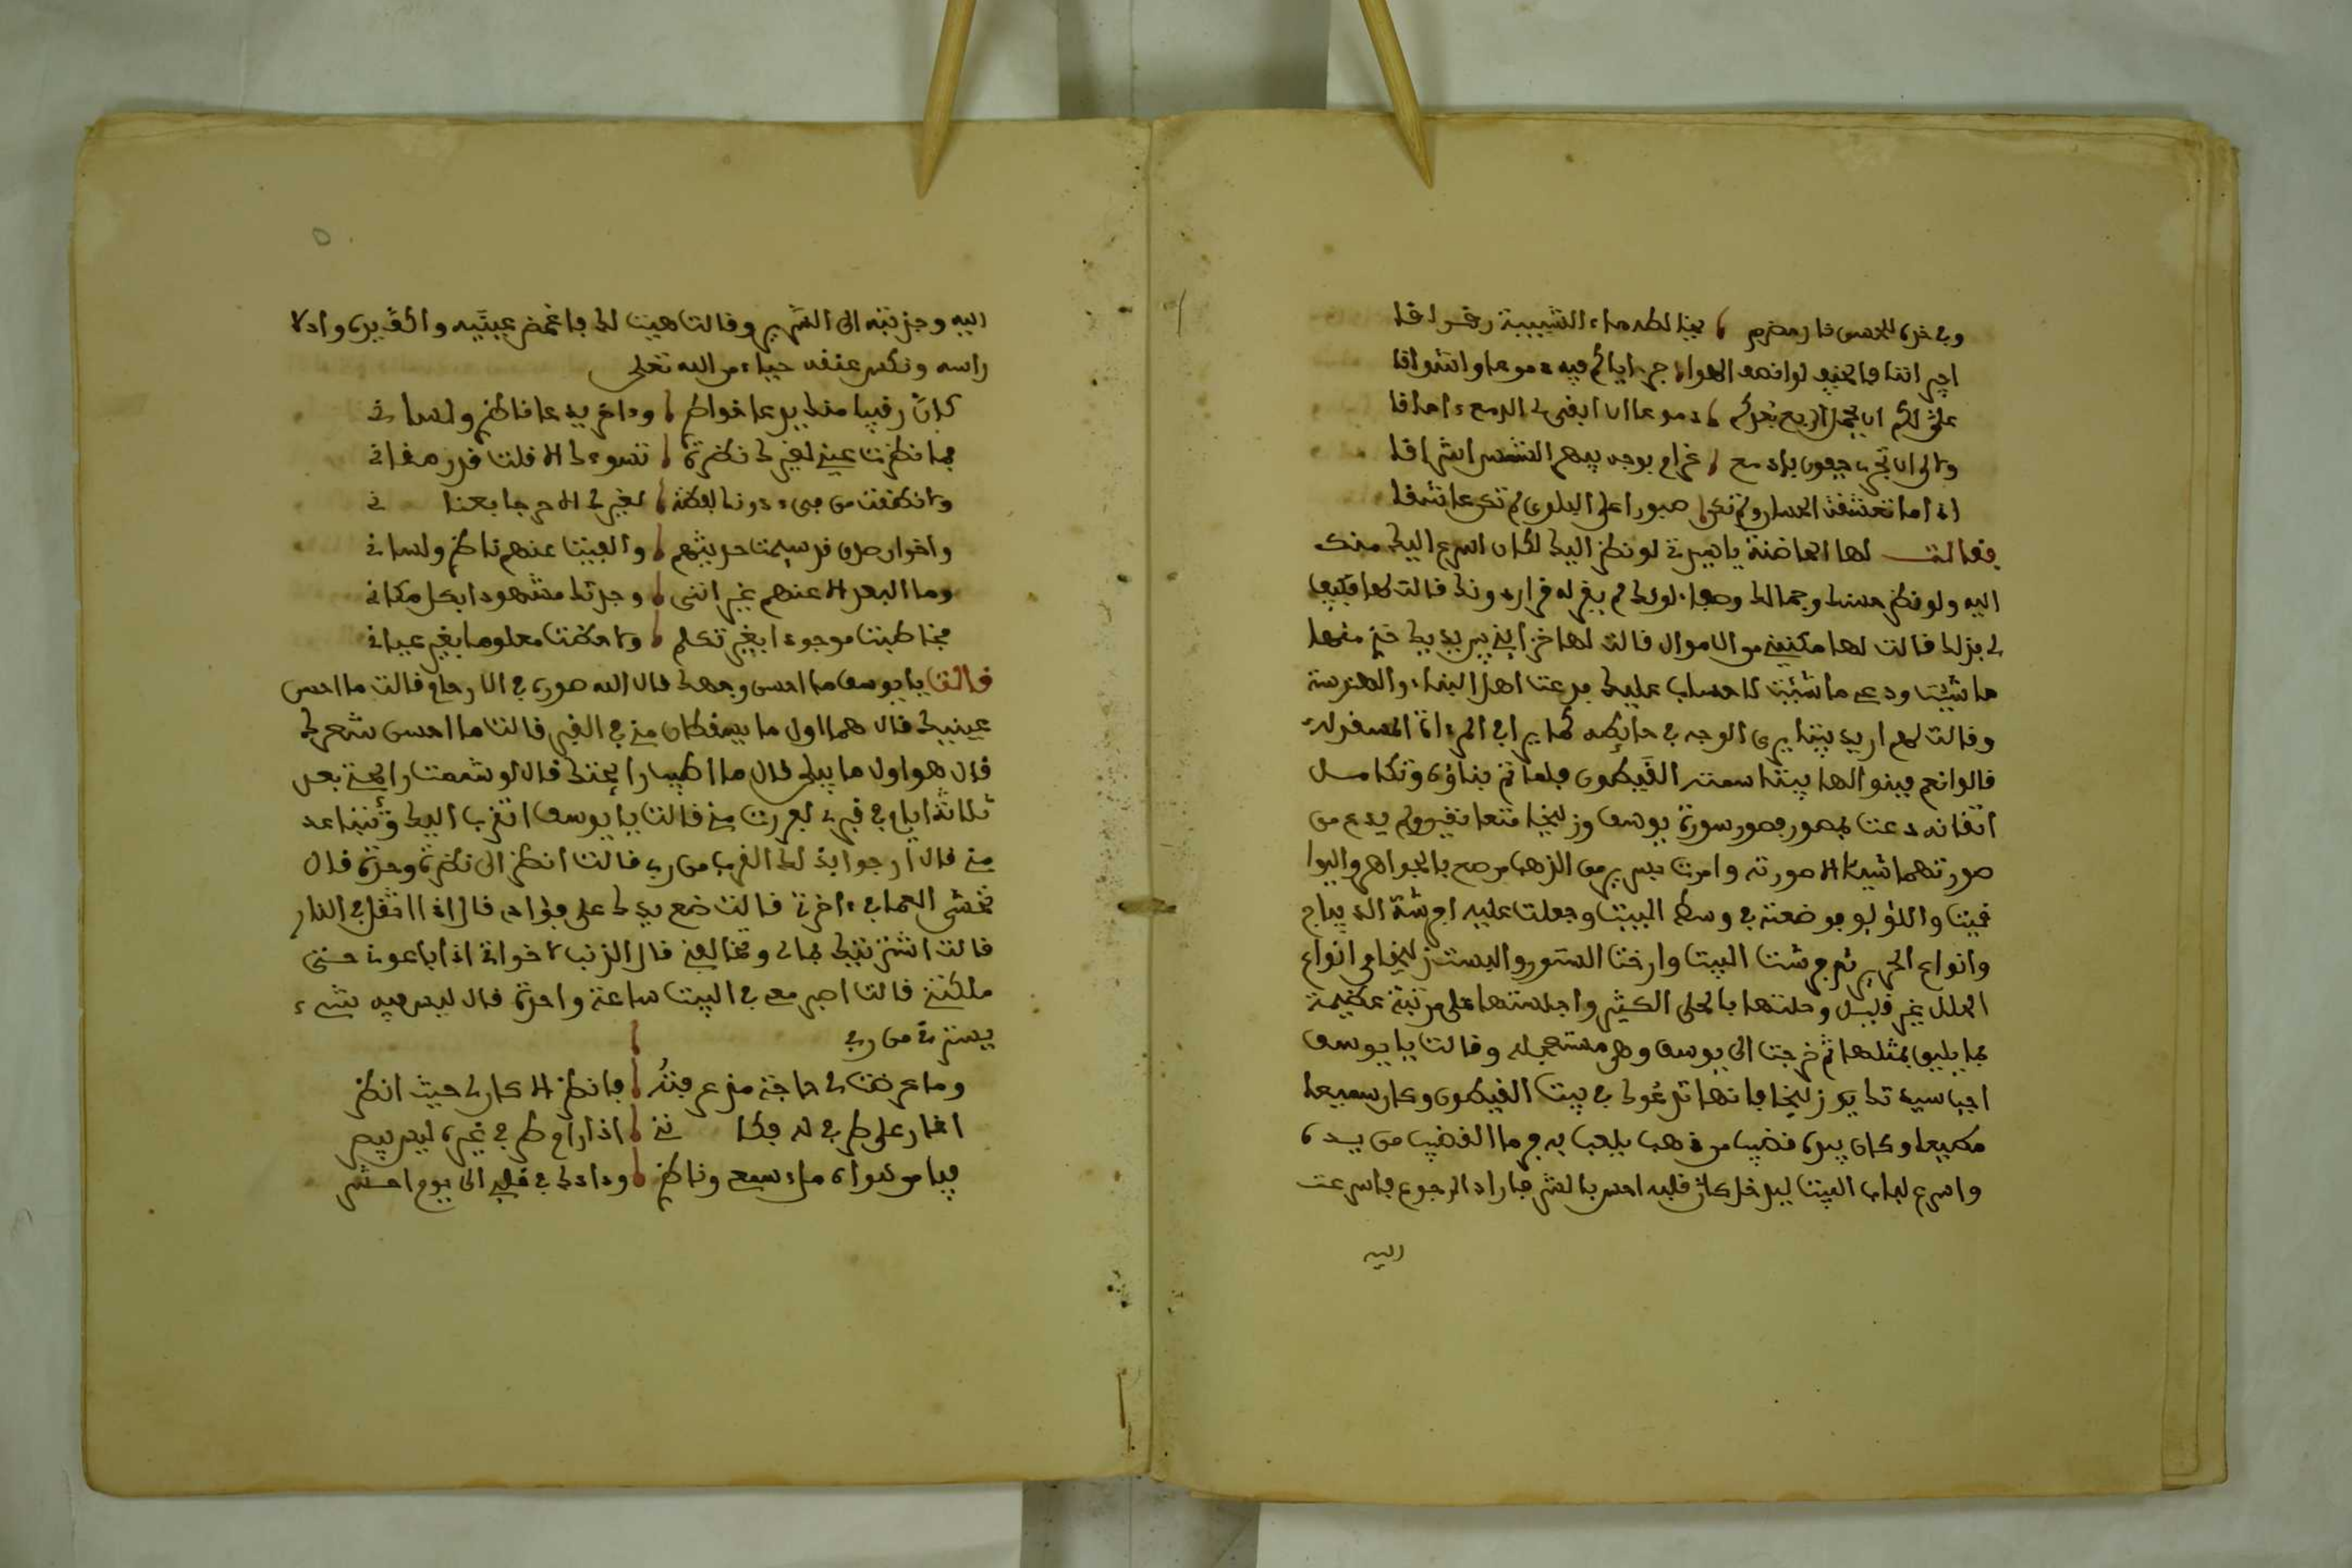 وفي خده للحسن نار مضرم يخالطه ماء الشبيبة رقراقا
على لكم ان يحمل الريح نحوكم دموعا ان ابقى لي الدمع احداقا
غرام بوجه يبهر الشمس اشراقا
اذا ما تعشقت الحسان ولم تكن صبورا على البلوى لم تكن عاشقا
فقالت لها الحاضنة يا هيرتي لو نظر اليك لكان اسرع اليك منك
اليه ولو نظر حسنك وجمالك وصفاء لونك لم يقر له قرار دونك قالت لها فكيف
لي بذلك قالت لها مكنيني من الاموال قالت لها خزايني بين يديك خذي منها
ما شئت ودعي ما شئت لا حساب عليك فدعت اهل البناء والهندسة
وقالت لهم اريد بيتا يرى الوجه في حائطه كما يرا في المرءاة المسقولة
قالوا نعم فبنوا لها بيتا سمته القيطون فلما تم بناؤه وتكامل
اتقانه دعت بمصور فصور سورة يوسف وزليخا متعانقين ولم يدع من
صورتهما شيئا الا صورته وامرت بسرير من الذهب مرصع بالجواهر واليوا
قيت واللؤلو فوضعته في وسط البيت وجعلت عليه افرشة الديباج
وانواع الحرير ثم فرشت البيت وارخت الستور والبست زليخا من انواع
الحلل غير قليل وحلتها بالحلي الكثير واجلستها على مرتبة عظيمة
بما يليق بمثلها ثم خرجت الى يوسف وهي مستعجلة وقالت يا يوسف
اجب سيدتك زليخا فانها تدعوك في بيت القيطون وكان سميعا
مطيعا وكان بيده قضيب من ذهب يلعب به فرما القضيب من يده
واسرع لباب البيت ليدخل كان قلبه احس بالشر فاراد الرجوع فاسرعت
اليه
اليه وجذبته الى السرير وقالت هيت لك فاغمض عينيه والف يده وادلا
راسه ونكس عنقه حياء من الله تعلى
كان رقيبا منك يرعا خواطر وءاخر يرعا ناظر ولساني
فما نظرت عيني لغيرك نظرة تسوءك الا قلت قد رمقاني
ولا نطقت من في دونك لفظة لغيرك الا عرجا بعناني
واخوان صدق قد سيمت حديثهم والفيت عنهم ناظر ولساني
وما البعد الا عنهم غير انني وجدتك مشهودا بكل مكاني
فخاطبت موجودا بغير تكلم ولاحظت معلوما بغير عياني
قالت يا يوسف ما احسن وجهك قال الله صوره في الارحام قالت ما احسن
عينيك قال هما اول ما يسقطان مني في القبر قالت ما احسن شعرك
قال هو اول ما يبلى قال ما اطيب رايحتك قال لو شممت رايحتي بعد
ثلاثة ايام في قبري لفررت مني قالت يا يوسف اتقرب اليك وتتباعد
مني قال ارجوا بذلك القرب من ربي قالت انظر الى نظرة وحدة قال
نخشى العما في ءاخرتي قالت ضع يدك على فؤادي قال اذا اتغل في النار
قالت اشتريتك بمالي وتخالفني قال الذنب لاخواتي اذا باعوني حتى
ملكتني قالت اصبر معي في البيت ساعة واحدة قال ليس فيه شيء
يسترني من ربي
وما عرضت لي حاجة مذ عرفته فانظر الا كان لي حيث انظر
اغار على طرفي له فكانني اذا رام طرفي غيره ليس يبصر
فيا من سواه ملء سمعي وناظر ودادك في قلبي الى يوم احشر